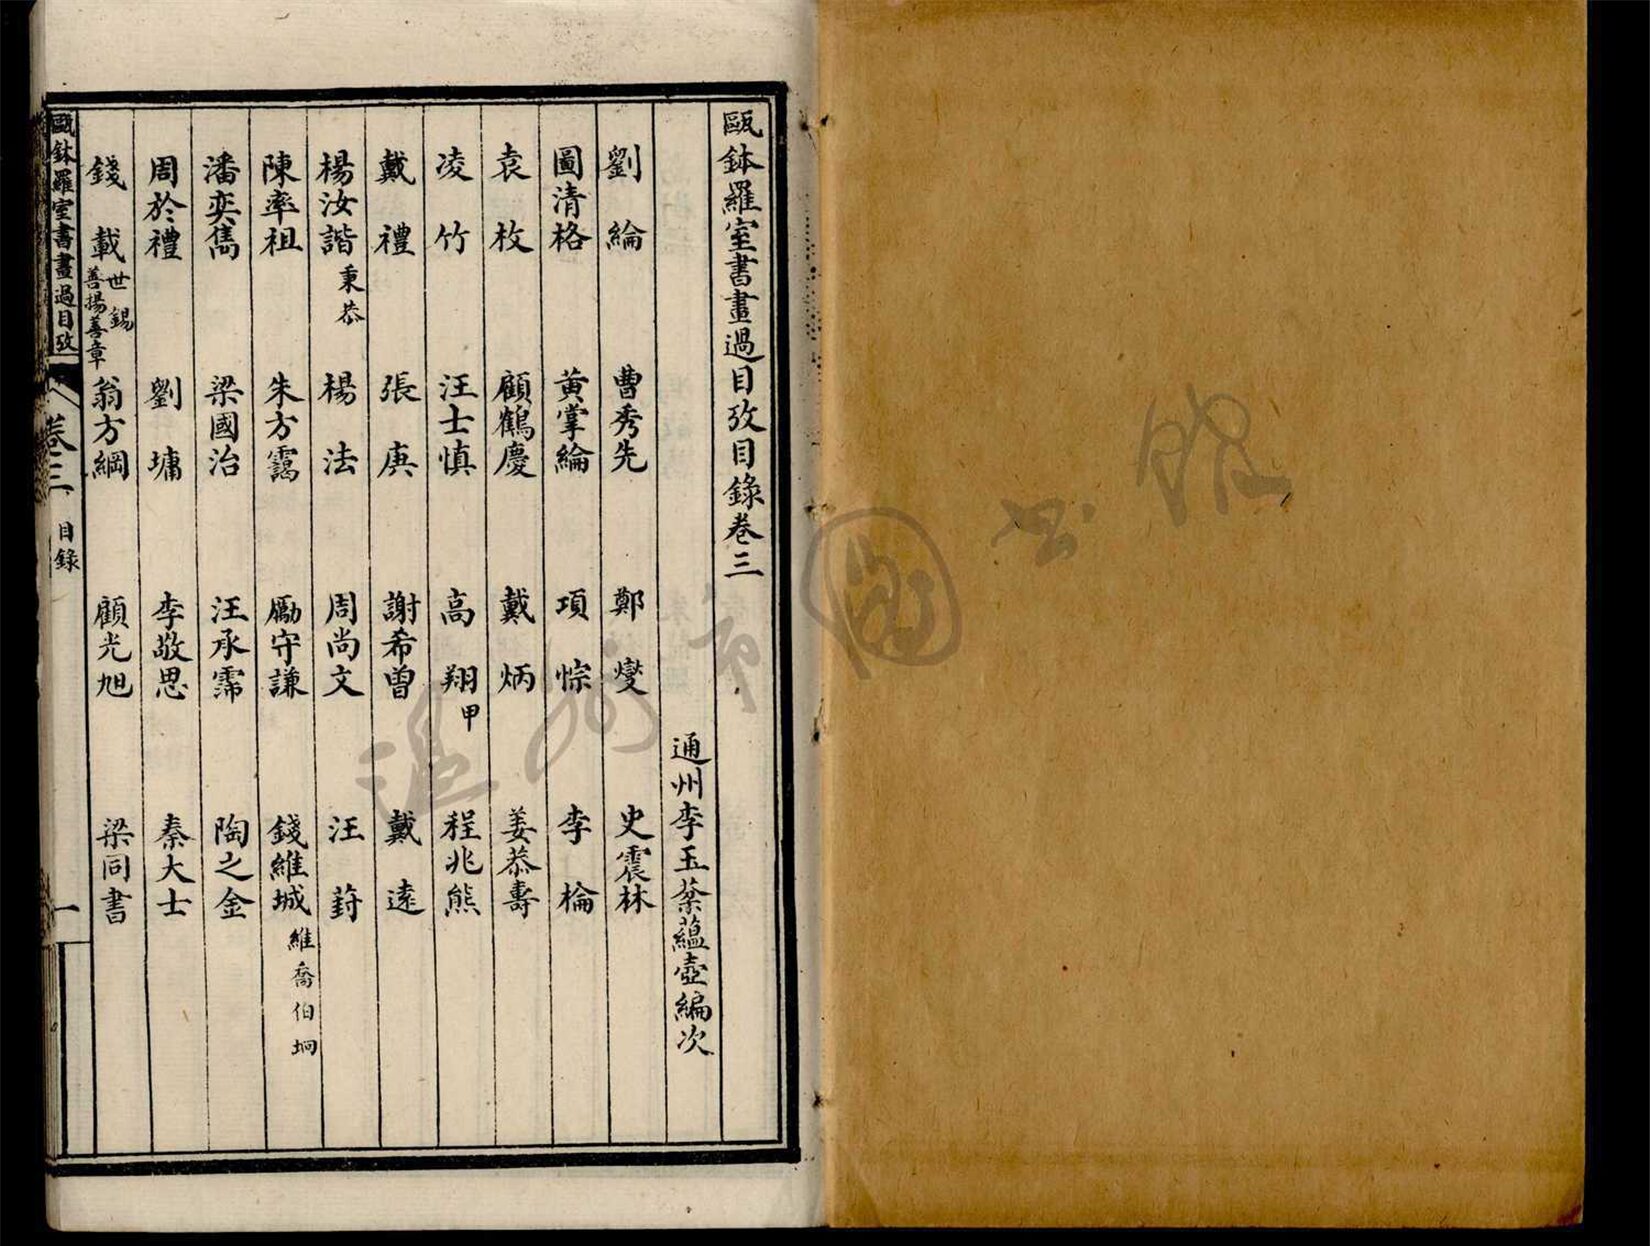 甌鉢羅室書畫過目攷目錄卷三
通州李玉棻蘊壺編次
劉綸　曹秀先　鄭燮　史震林
圖清格　黃掌綸　項悰　李棆
袁枚　顧鶴慶　戴炳　姜恭壽
凌竹　汪士慎　高翔甲　程兆熊
戴禮　張庚　謝希曾　戴遠
楊汝諧秉恭　楊法　周尚文　汪葑
陳率祖　朱方靄　勵守謙　錢維城維喬伯坰
潘奕雋　梁國治　汪承霈　陶之金
周於禮　劉墉　李敬思　秦大士
錢載世錫善揚善章　翁方綱　顧光旭　梁同書
甌鉢羅室書畫過目攷　卷三　目錄　一
溫州市圖書館